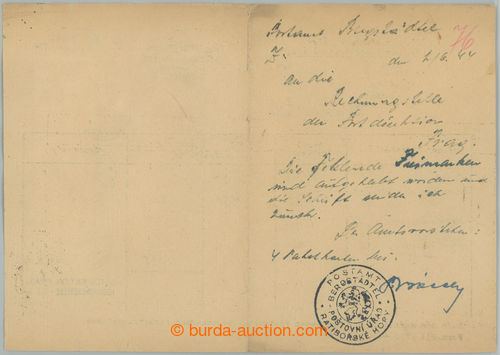 Postamt Bergstädtel
76
den 2/6.44
an die
Rechnungstelle
der Postdirektion
Prag.
Die fehlende Freimarken
sind aufgeklebt worden und
die Schrift sende ich
zurück.
Der Amtsvorsteher:
4 Paketkarten
POSTAMT
BERGSTÄDTEL
POŠTOVNÍ ÚŘAD
RATIBOŘSKÉ HORY
© burda-auction.com